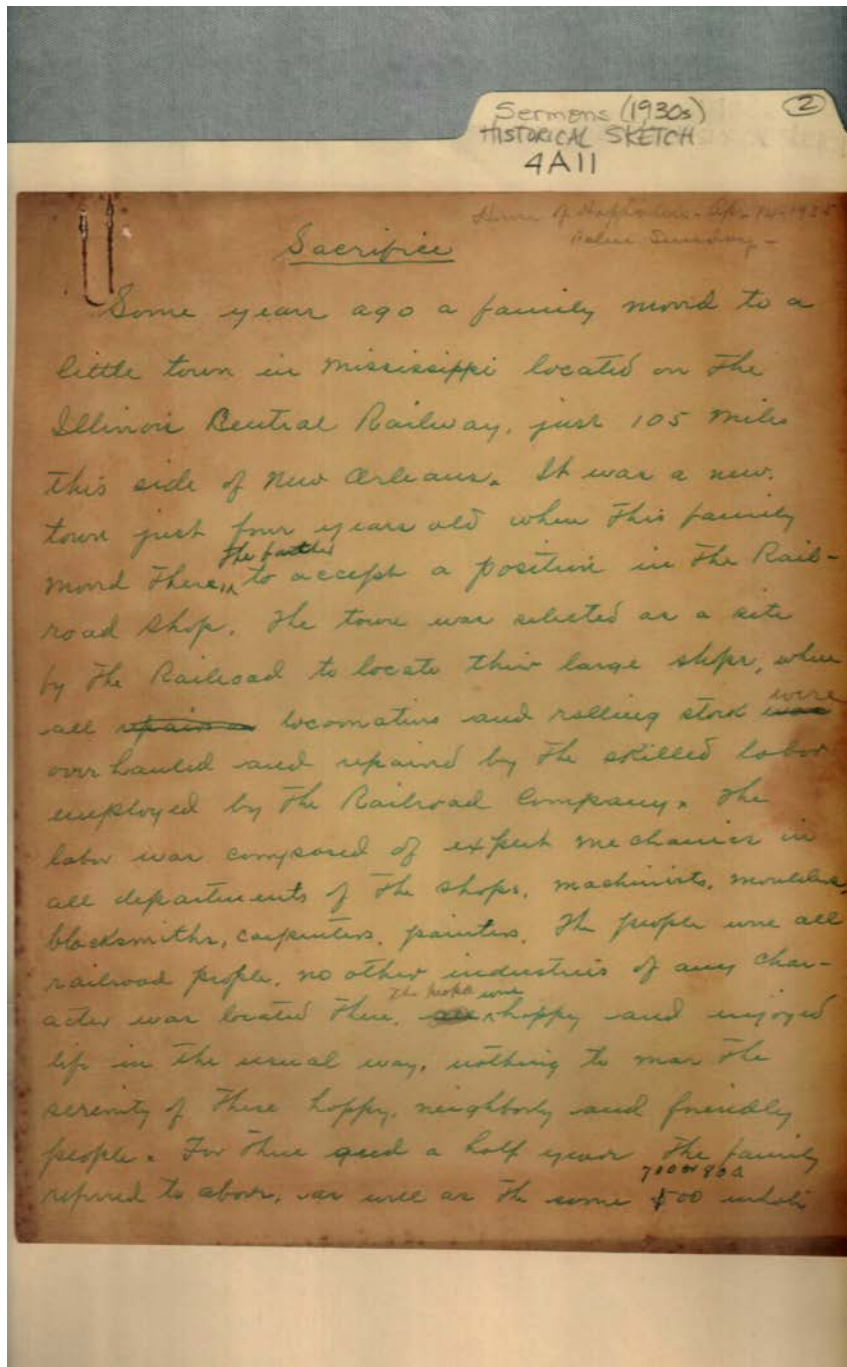 Sermons (1930s) 2
HISTORICAL SKETCH
4A11
House of Happiness - Ap. 14-1935
Palm Sunday -
Sacrifice
Some years ago a family moved to a
little town in Mississippi located on the
Illinois Central Railway, just 105 miles
this side of New Orleans. It was a new
town just four years old when this family
The father
moved there, to accept a position in the Rail-
road shop. The town was selected as a site
by the Railroad to locate their large shops, where
all repairs locomotives and rolling stock was were
over hauled and repaired by the skilled labor
employed by the Railroad Company. The
labor was composed of expert mechanics in
all departments of the shops, machinists, moulders,
blacksmiths, carpenters, painters. The people were all
railroad people, no other industries of any char-
The people were
acter was located there, happy and enjoyed
life in the usual way, nothing to mar the
serenity of these happy, neighborly and friendly
people. For three and a half years the family
700 or 800
referred to above, as well as the some 500